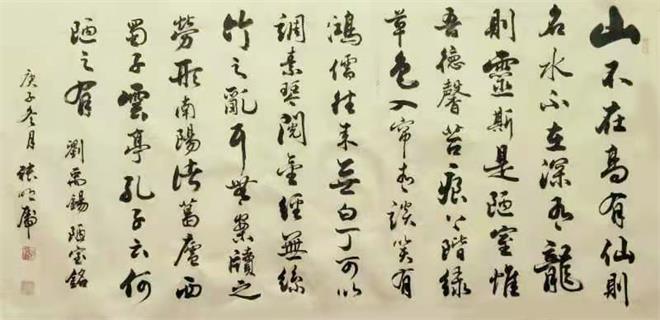 山不在高有仙則
名水不在深有龍
則靈斯是陋室惟
吾德馨苔痕上階緑
草色入帘青談笑有
鴻儒往來無白丁可以
調素琴閱金經無絲
竹之亂耳無案牘之
勞形南陽諸葛廬西
蜀子雲亭孔子云何
陋之有
劉禹錫陋室銘
庚子冬月